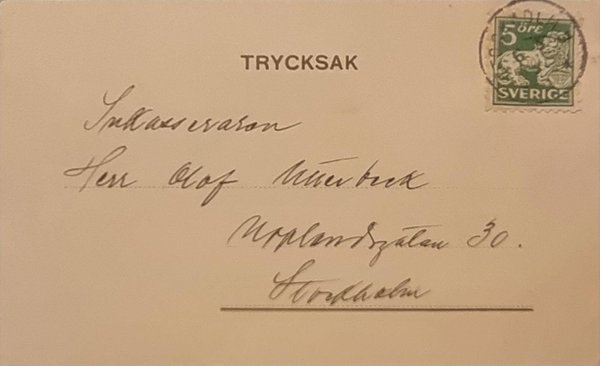 5 ÖRE
SVERIGE
TRYCKSAK
Inkasseraren
Herr Olof Utterbeck
Upplandsgatan 30.
Stockholm